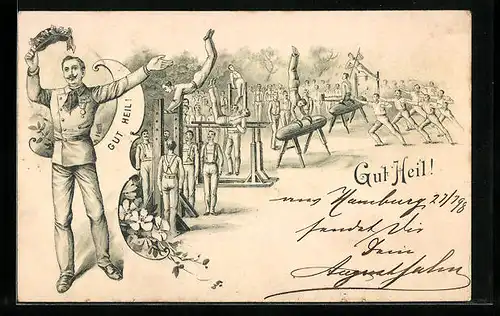 GUT HEIL!
Gut Heil!
aus Hamburg, 27/7 98
sendet Dir
Dein
August Jahn